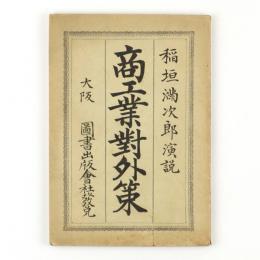 稲垣満次郎演説
商工業對外策
大阪 圖書出版會社發兌